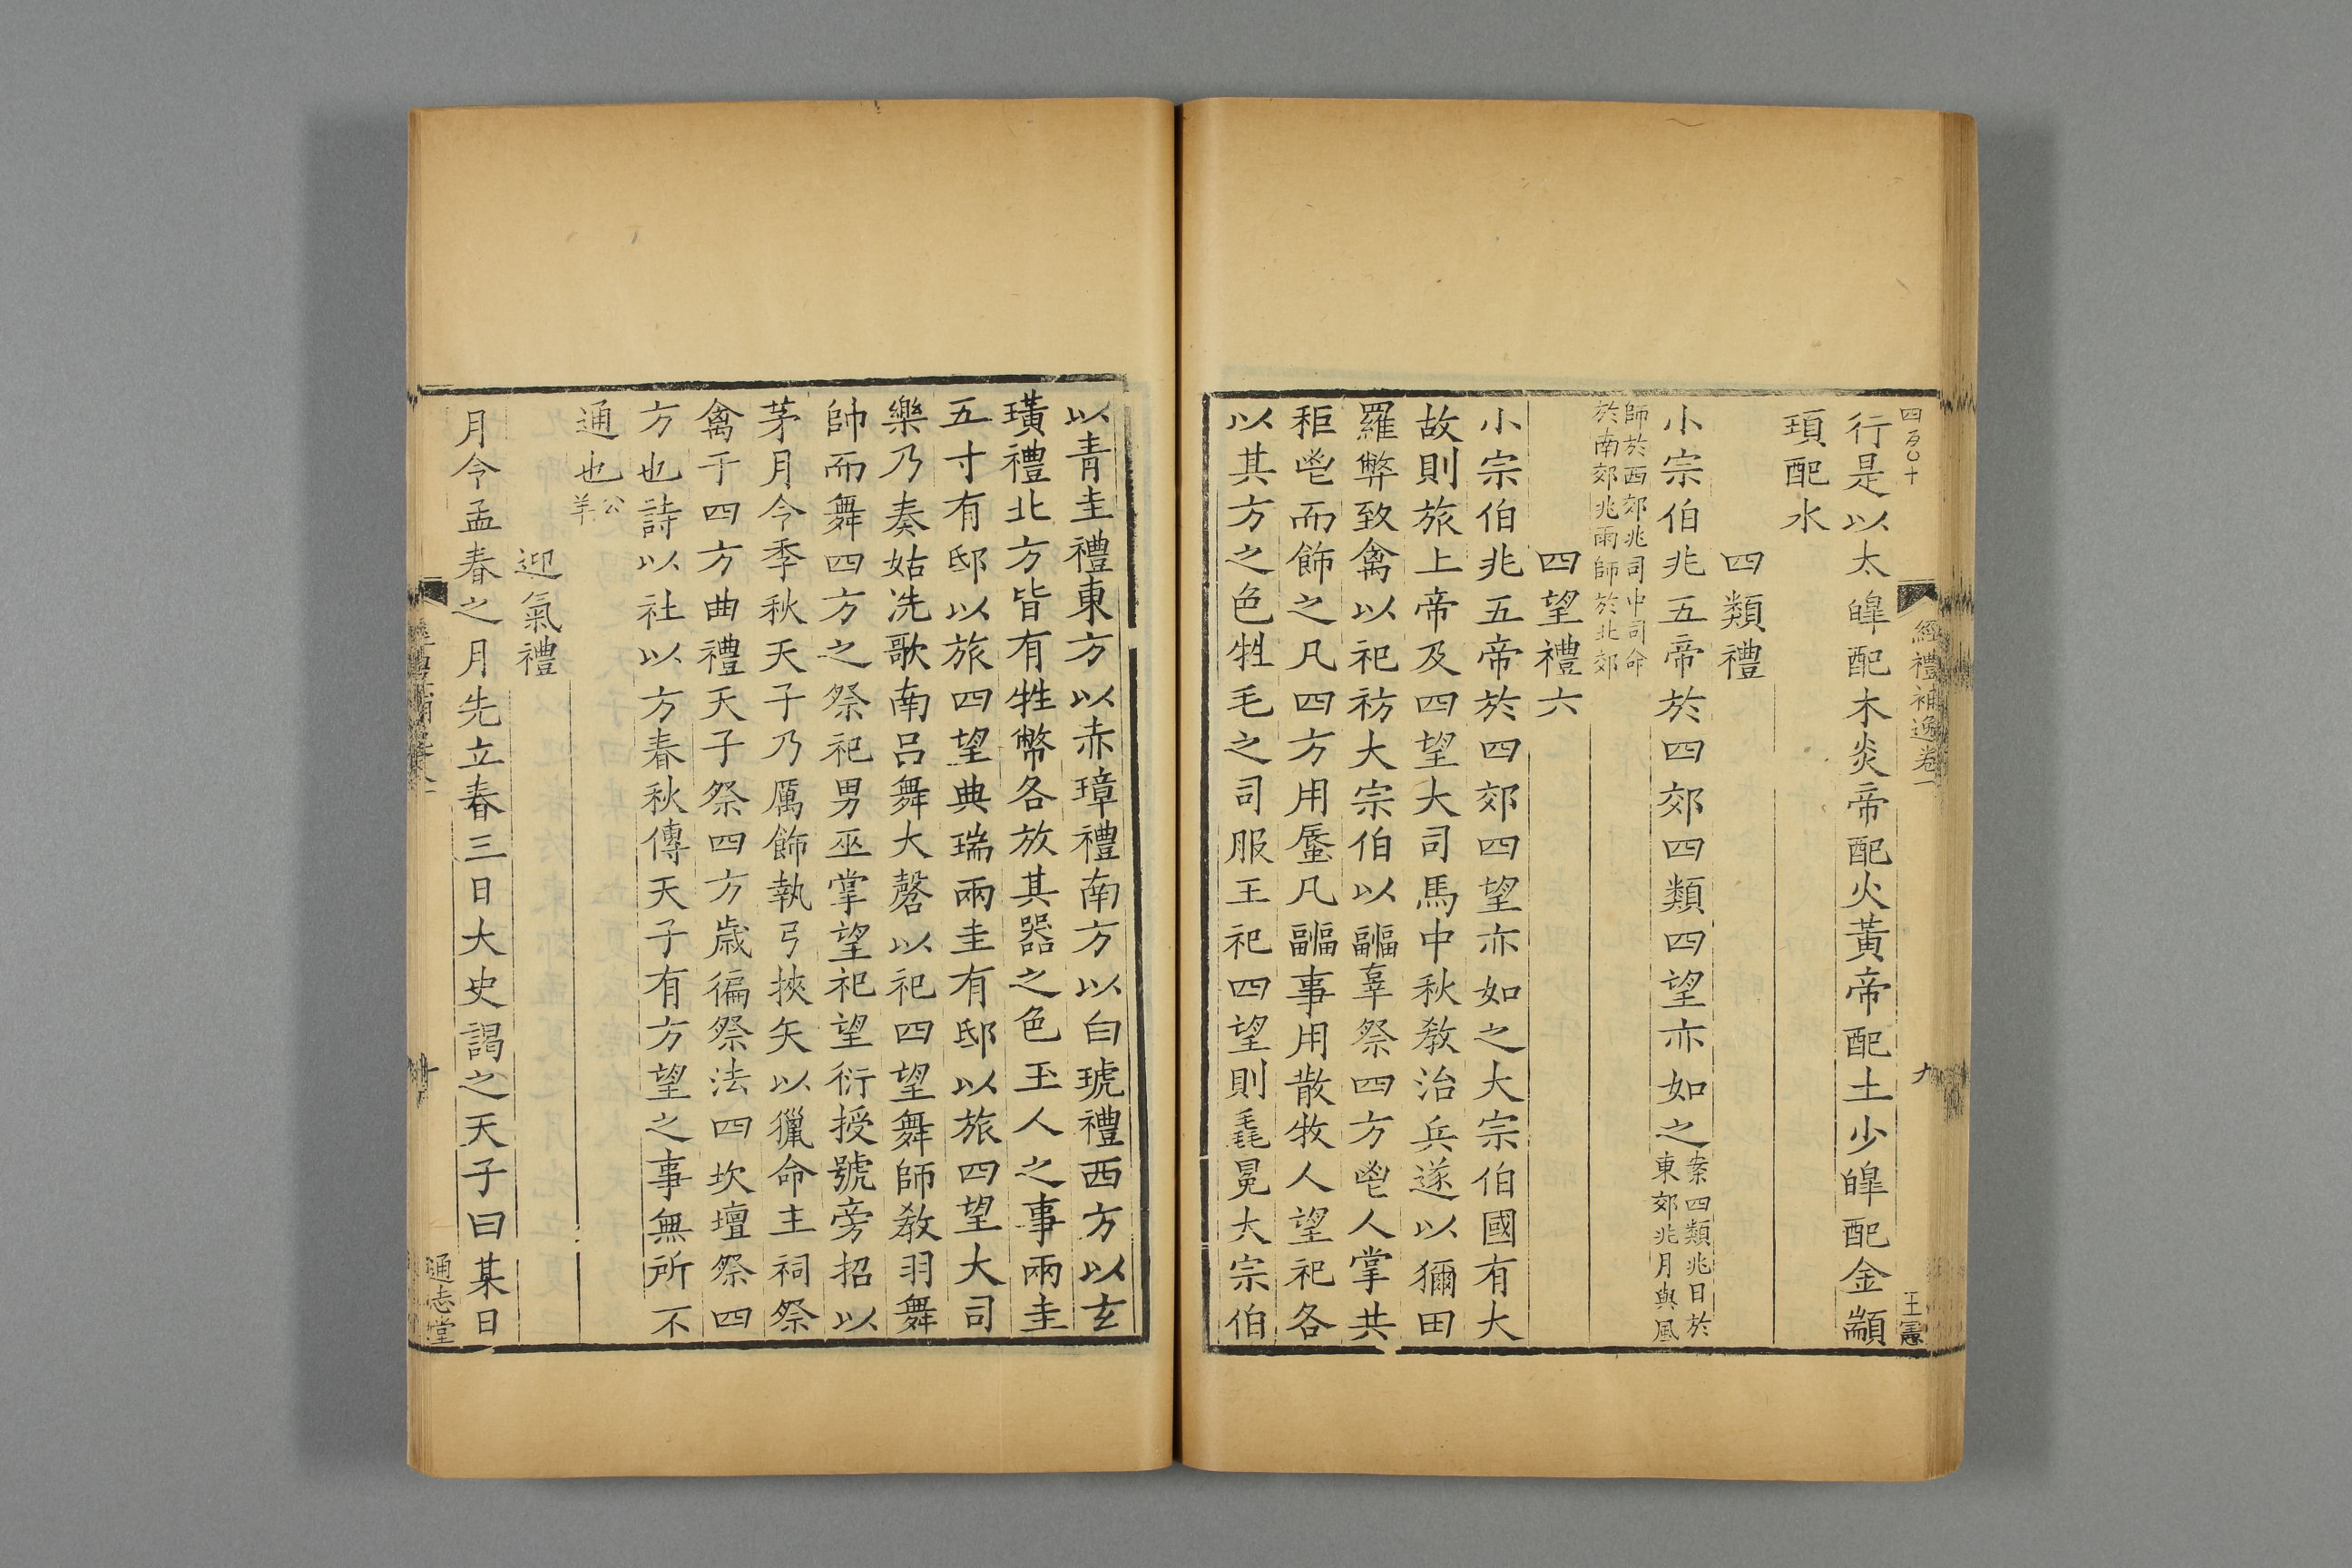 四百〇十
經禮補逸卷一
九
王憲
行是以太皥配木炎帝配火黃帝配土少皥配金顓
頊配水
四類禮
小宗伯兆五帝於四郊四類四望亦如之案四類兆日於東郊兆月與風
師於西郊兆司中司命於南郊兆雨師於北郊
四望禮六
小宗伯兆五帝於四郊四望亦如之大宗伯國有大
故則旅上帝及四望大司馬中秋敎治兵遂以獮田
羅弊致禽以祀祊大宗伯以疈辜祭四方鬯人掌共
秬鬯而飾之凡四方用蜃凡疈事用散牧人望祀各
以其方之色牲毛之司服王祀四望則毳冕大宗伯
以青圭禮東方以赤璋禮南方以白琥禮西方以玄
璜禮北方皆有牲幣各放其器之色玉人之事兩圭
五寸有邸以旅四望典瑞兩圭有邸以旅四望大司
樂乃奏姑洗歌南呂舞大磬以祀四望舞師敎羽舞
帥而舞四方之祭祀男巫掌望祀望衍授號旁招以
茅月令季秋天子乃厲飾執弓挾矢以獵命主祠祭
禽于四方曲禮天子祭四方歲徧祭法四坎壇祭四
方也詩以社以方春秋傳天子有方望之事無所不
通也公羊
迎氣禮
月令孟春之月先立春三日大史謁之天子曰某日
十
通志堂